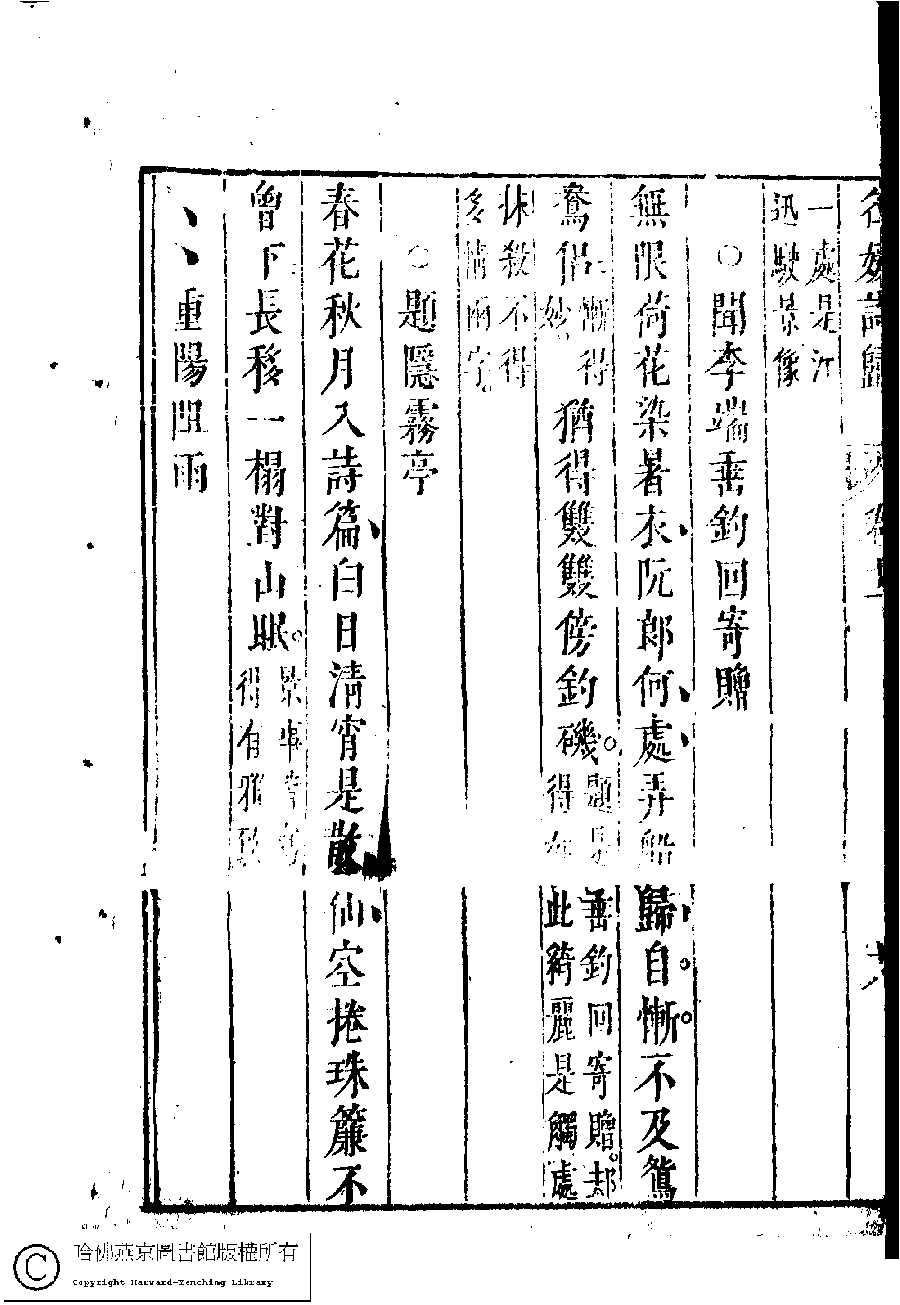 名媛詩歸
一處是江
迅駛景像
○聞李端垂釣回寄贈
無限荷花染暑衣阮郎何處弄船歸自慚不及鴛
鴦侶慚得妙猶得雙雙傍釣磯題是垂釣回寄贈却得如此綺麗是觸處
抹殺不得
多情兩字
○題隱霧亭
春花秋月入詩篇白日清宵是散仙空捲珠簾不
曾下長移一榻對山眠景事皆得有雅致
重陽阻雨
哈佛燕京圖書館版權所有
Copyright Harvard-Yenching Library